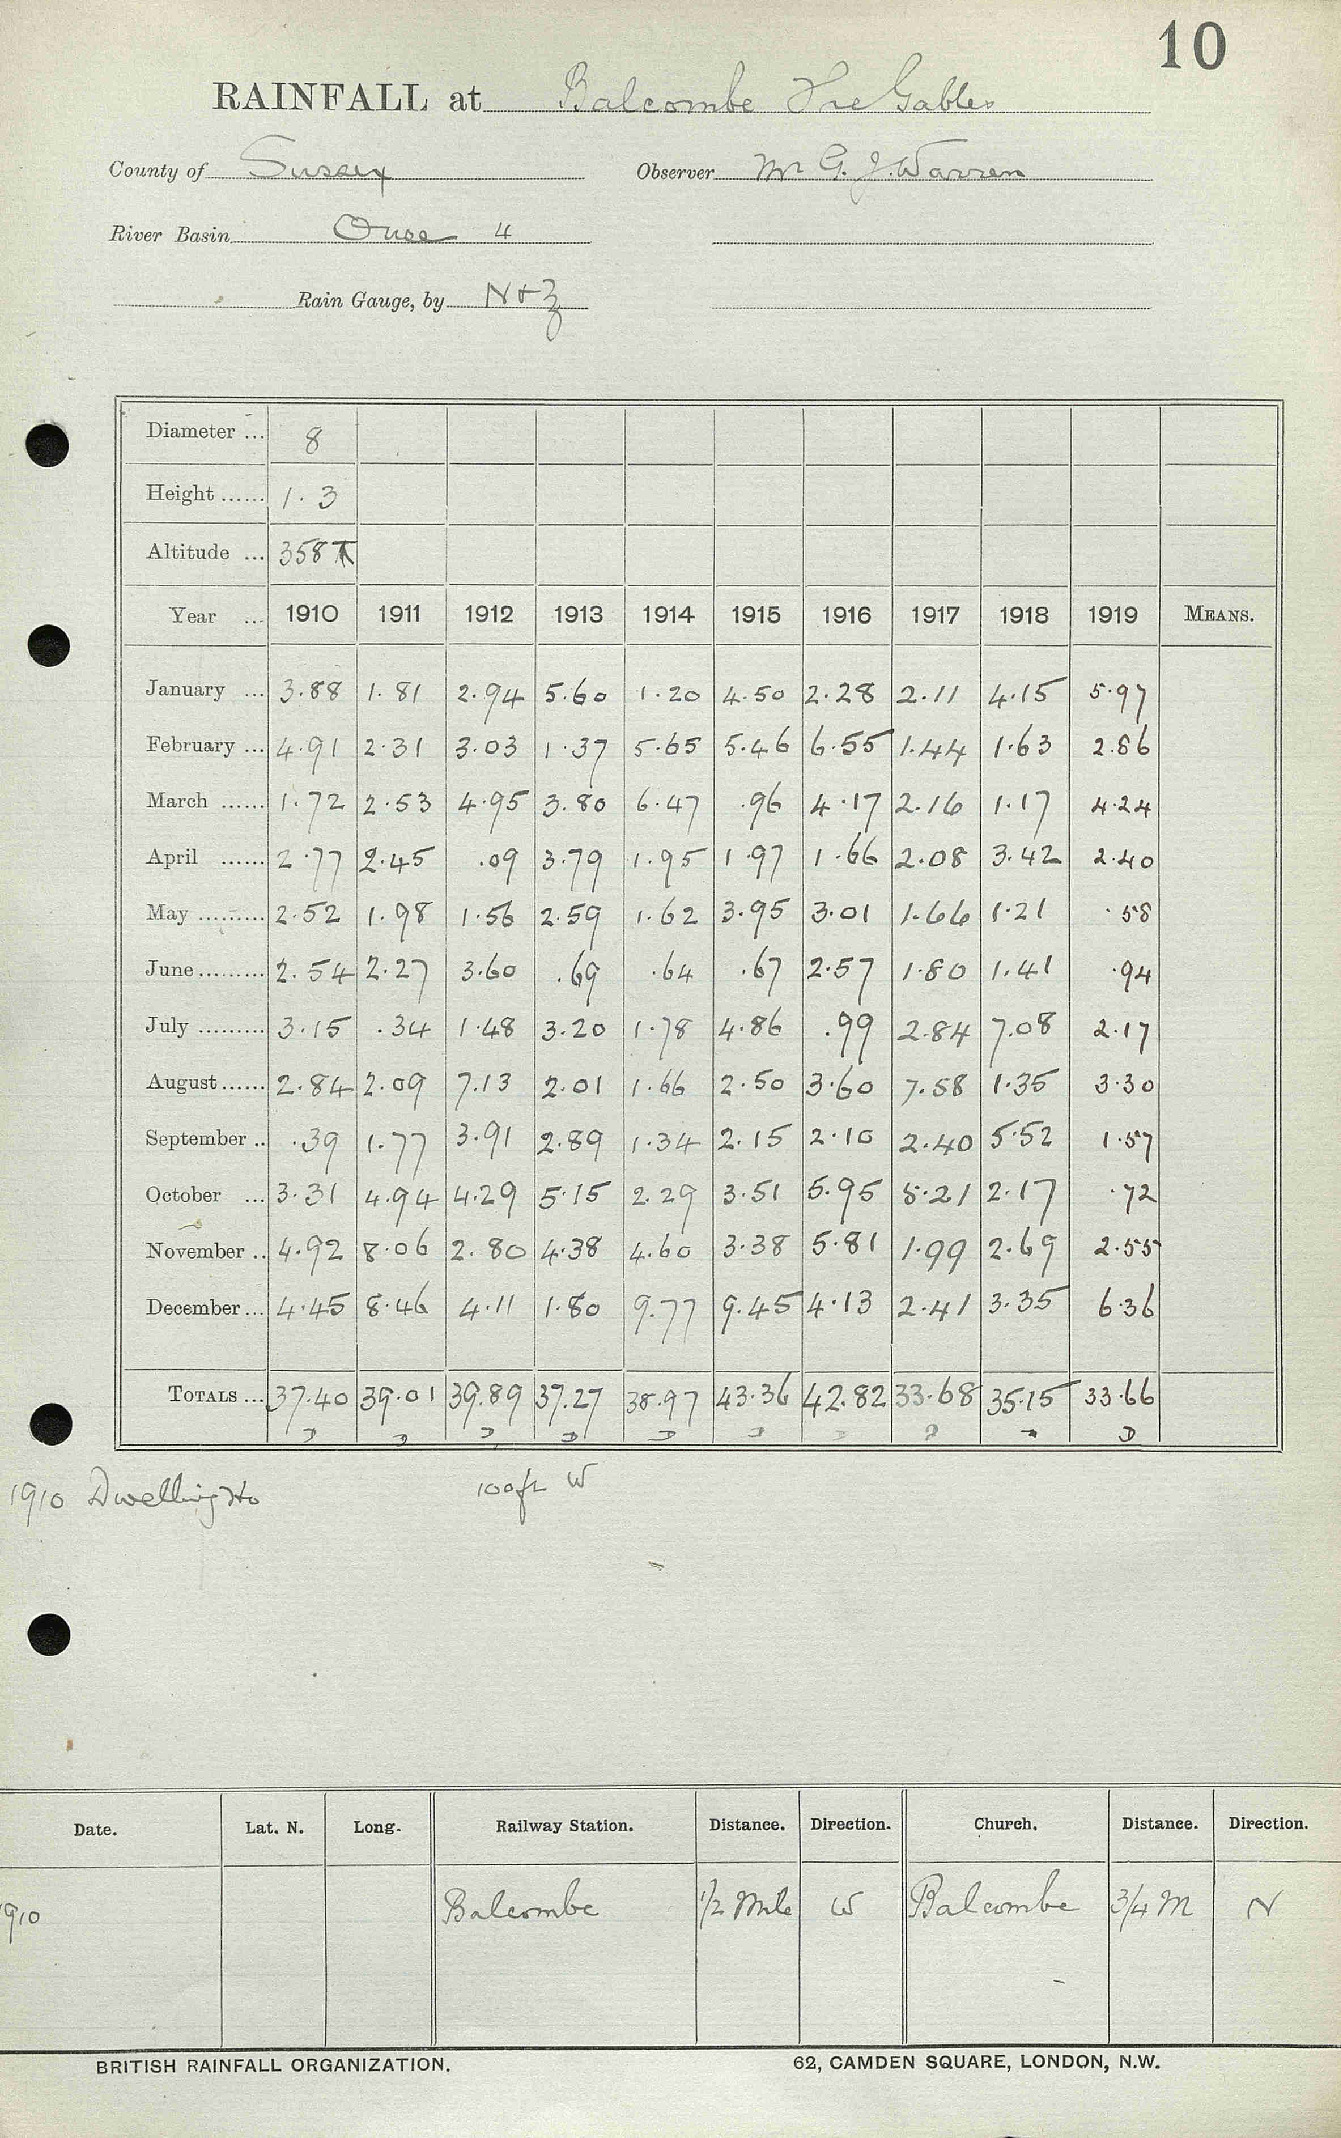 10
RAINFALL at Balcombe The Gables
County of Sussex Observer Mr G. J. Warren
River Basin Ouse 4
Rain Gauge, by N+Z
Diameter ... 8
Height ...... 1.3
Altitude ... 358
Year ... 1910 1911 1912 1913 1914 1915 1916 1917 1918 1919 MEANS.
January ... 3.88 1.81 2.94 5.60 1.20 4.50 2.28 2.11 4.15 5.97
February ... 4.91 2.31 3.03 1.37 5.65 5.46 6.55 1.44 1.63 2.86
March ...... 1.72 2.53 4.95 3.80 6.47 .96 4.17 2.16 1.17 4.24
April ...... 2.77 2.45 .09 3.79 1.95 1.97 1.66 2.08 3.42 2.40
May ......... 2.52 1.98 1.56 2.59 1.62 3.95 3.01 1.66 1.21 .58
June ......... 2.54 2.27 3.60 .69 .64 .67 2.57 1.80 1.41 .94
July ......... 3.15 .34 1.48 3.20 1.78 4.86 .99 2.84 7.08 2.17
August ...... 2.84 2.09 7.13 2.01 1.66 2.50 3.60 7.58 1.35 3.30
September .. .39 1.77 3.91 2.89 1.34 2.15 2.10 2.40 5.52 1.57
October ... 3.31 4.94 4.29 5.15 2.29 3.51 5.95 5.21 2.17 .72
November .. 4.92 8.06 2.80 4.38 4.60 3.38 5.81 1.99 2.69 2.55
December ... 4.45 8.46 4.11 1.80 9.77 9.45 4.13 2.41 3.35 6.36
TOTALS ... 37.40 39.01 39.89 37.27 38.97 43.36 42.82 33.68 35.15 33.66
1910 Dwelling Ho 100ft W
Date. Lat. N. Long. Railway Station. Distance. Direction. Church. Distance. Direction.
1910 Balcombe 1/2 Mile W Balcombe 3/4 M N
BRITISH RAINFALL ORGANIZATION. 62, CAMDEN SQUARE, LONDON, N.W.